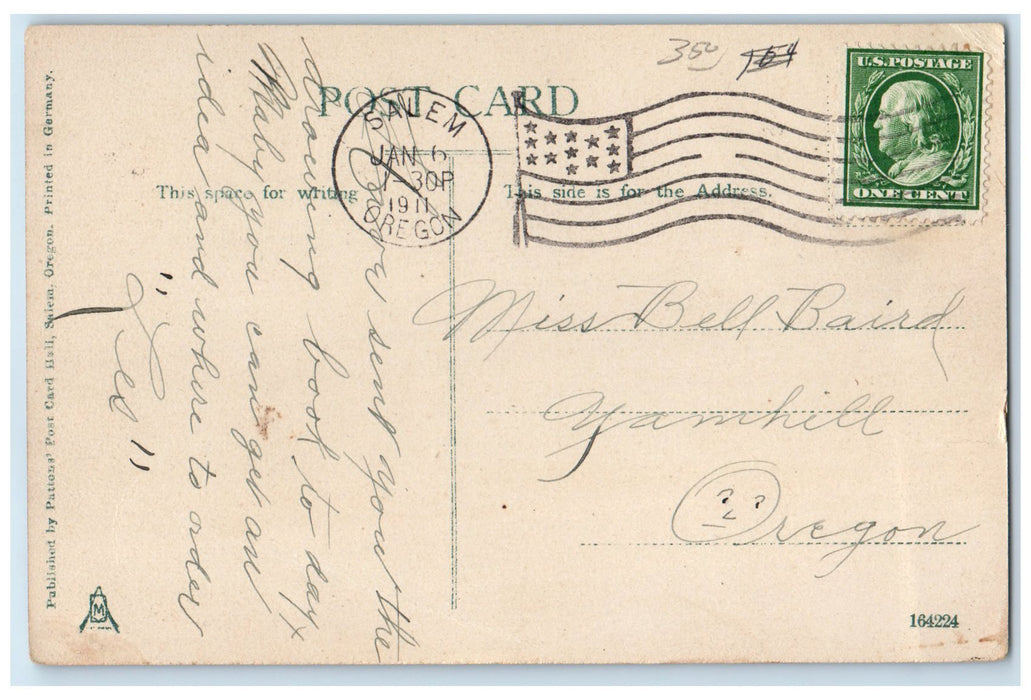 350 154
U.S. POSTAGE
ONE CENT
POST CARD
SALEM
JAN 6
1-30P
1911
OREGON
This space for writing
This side is for the Address.
sent you the
drawing book to day x
Maby you can get an
idea and where to order
" Led "
Miss Bell Baird
Yamhill
Oregon
Published by Pattons' Post Card Hall, Salem, Oregon. Printed in Germany.
M
164224